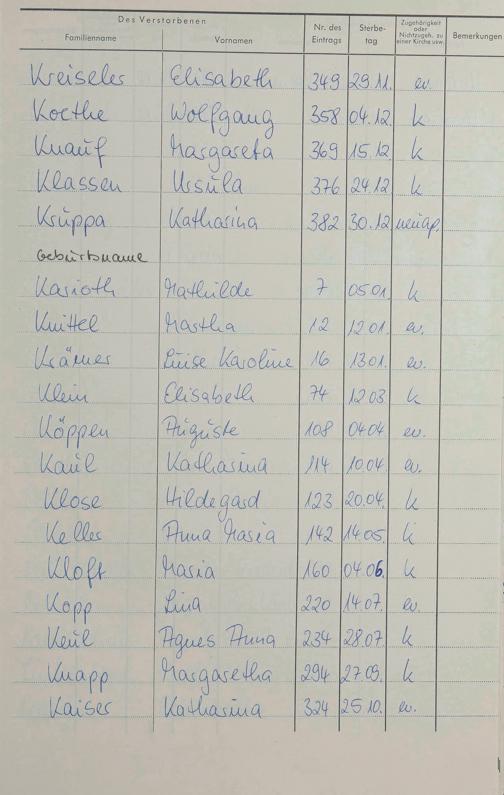 Des Verstorbenen
Familienname Vornamen Nr. des Eintrags Sterbe- tag Zugehörigkeit oder Nichtzugeh. zu einer Kirche usw. Bemerkungen
Kreiseler Elisabeth 349 29.11. ev.
Koethe Wolfgang 358 04.12. k
Knauf Margareta 369 15.12. k
Klassen Ursula 376 24.12 k
Kruppa Katharina 382 30.12 neuap.
Geburtsname
Karioth Mathilde 7 05 01. k
Knittel Martha 12 12 01. ev.
Krämer Luise Karoline 16 13 01. ev.
Klein Elisabeth 74 12 03 k
Köppen Auguste 108 04 04 ev.
Kaul Katharina 114 10.04. ev.
Klose Hildegard 123 20.04. k
Keller Anna Maria 142 14.05. k
Kloft Maria 160 04.06. k
Kopp Lina 220 14.07. ev.
Keul Agnes Anna 234 28.07. k
Knapp Margaretha 294 27.09. k
Kaiser Katharina 324 25.10. ev.